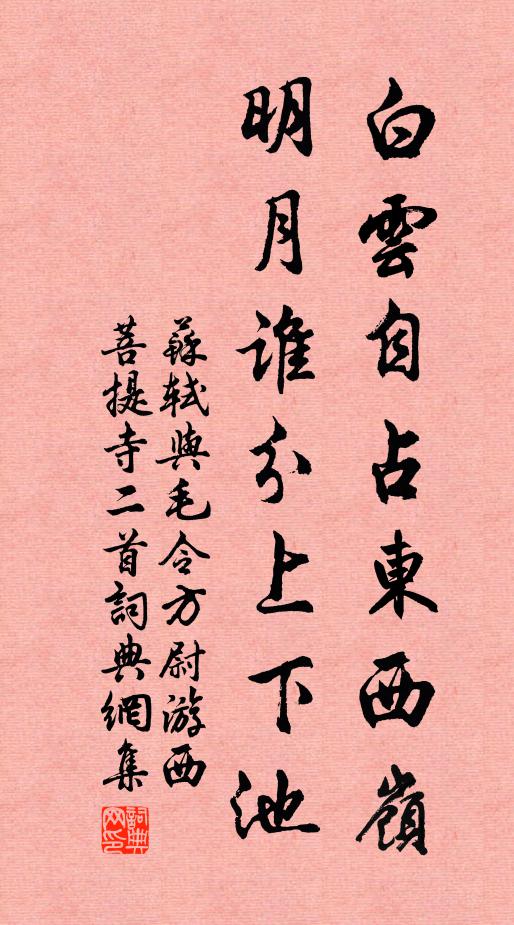 白雲自占東西嶺
明月誰分上下池
蘇軾與毛令方尉游西
菩提寺二首詞典網集
詞典
网印